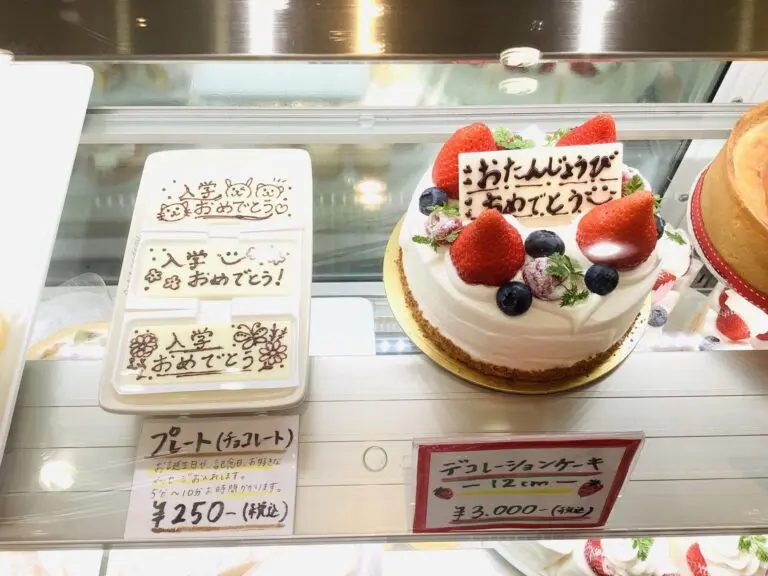 入学
おめでとう
入学
おめでとう!
入学
おめでとう
おたんじょうび
おめでとう
プレート(チョコレート)
お誕生日や、記念日、お好きな
メッセージお入れします。
5分〜10分お時間かかります。
¥250-(税込)
デコレーションケーキ
— 12cm —
¥3.000-(税込)